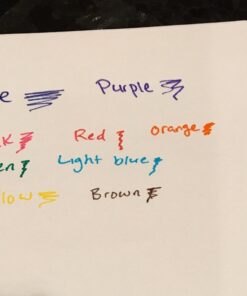 e Purple
k Red Orange
en Light blue
low Brown